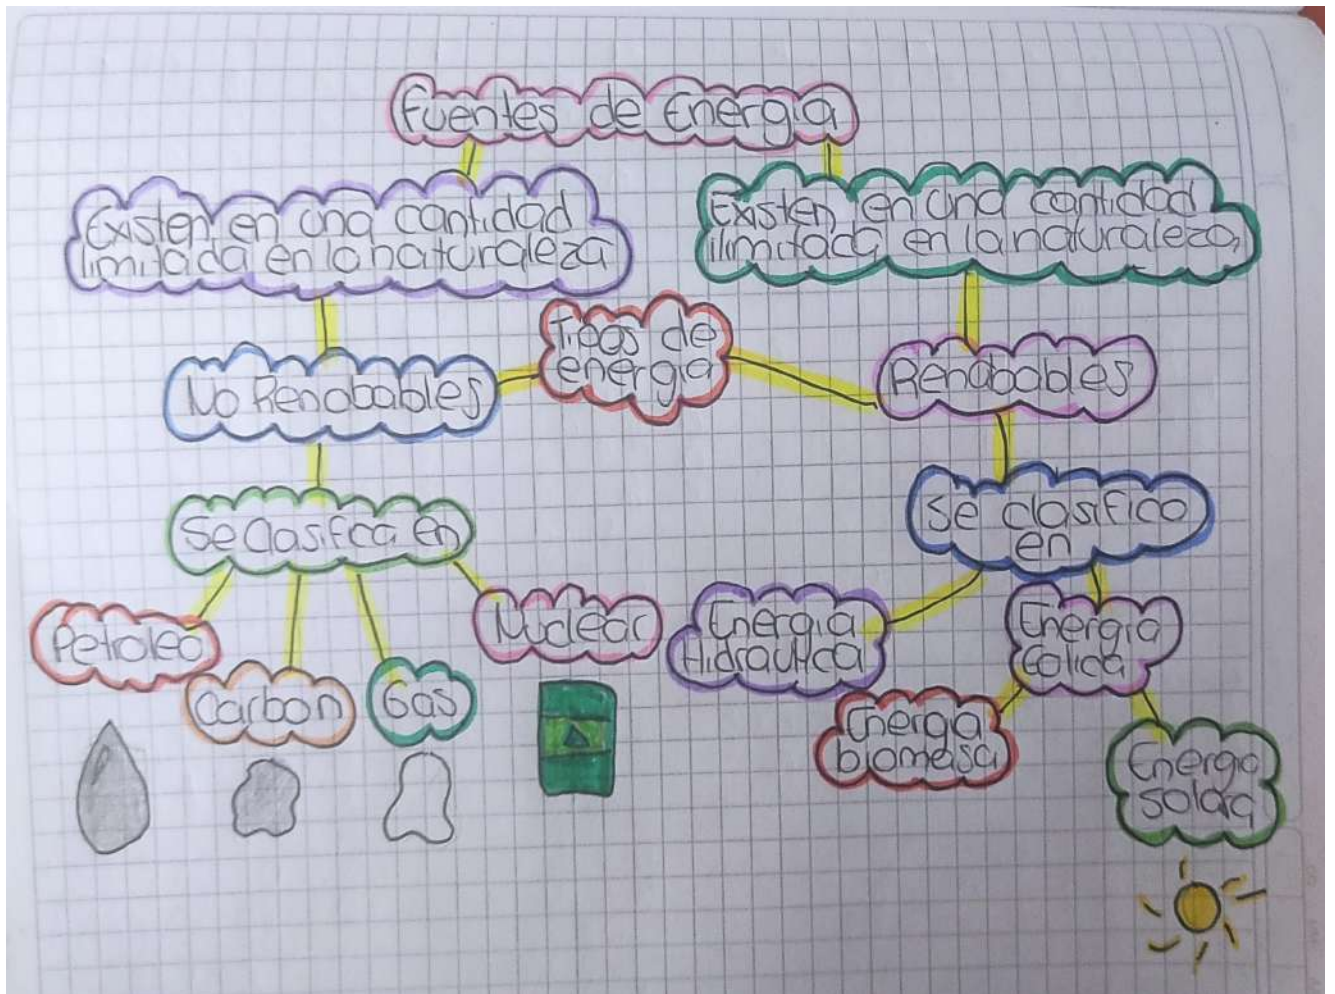 Fuentes de Energia
Existen en una cantidad
limitada en la naturaleza
Existen en una cantidad
ilimitada en la naturaleza,
Tipos de
energia
No Renobables
Renobables
Se Clasifca en
Se clasifica
en
Petroleo
Carbon
Gas
Nuclear
Energia
Hidraulica
Energia
Eolica
Energia
biomasa
Energia
solar